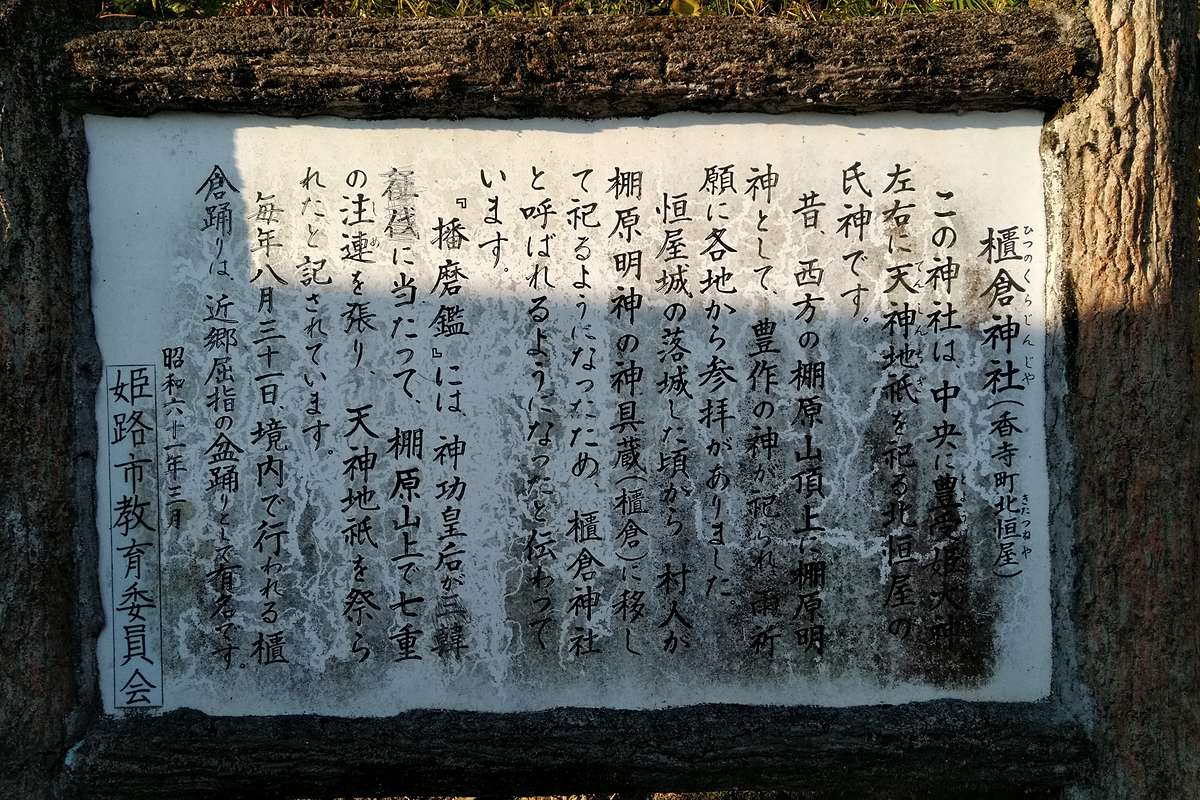 櫃倉神社(香寺町北恒屋)
この神社は、中央に豊受姫大神
左右に天神地祇を祀る北恒屋の
氏神です。
昔、西方の棚原山頂上に棚原明
神として、豊作の神が祀られ、雨祈
願に各地から参拝がありました
恒屋城の落城した頃から 村人が
棚原明神の神具蔵(櫃倉)に移し
て祀るようになったため、櫃倉神社
と呼ばれるようになったと伝わって
います。
『播磨鑑』には、神功皇后が三韓
征伐に当たって、棚原山上で七重
の注連を張り、天神地祇を祭ら
れたと記されています。
毎年八月三十一日、境内で行われる櫃
倉踊りは、近郷屈指の盆踊りとして有名です。
昭和六十一年三月
姫路市教育委員会